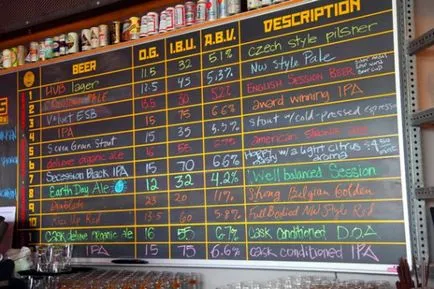 BEER O.G. I.B.U. A.B.V. DESCRIPTION
1 HUB lager 11.5 32 5.1% Czech style pilsner
2 ALE 13.5 45 5.3% NW Style Pale
3 Velvet ESB 13.5 30 5.2% English Session BEER
4 IPA 15 75 6.6% award winning IPA
5 Seven Grain Stout 15 35 5.5% Stout w/cold-pressed espresso
6 deluxe organic ale 16 55 6.7% american strong ale
7 Secession Black IPA 15 70 6.6% Hoppy w/ a light citrus aroma
8 Earth Day Ale 12 32 4.2% Well balanced Session
9 23 20 11% Strong Belgian Golden
10 Rise Up Red 13.5 60 5.8% Full Bodied NW Style Red
Cask deluxe organic ale 16 55 6.7% Cask Conditioned D.O.A
IPA 15 75 6.6% cask conditioned IPA